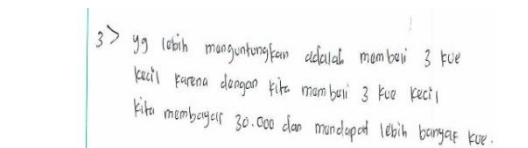 3> yg lebih menguntungkan adalah membeli 3 kue
kecil karena dengan kita membeli 3 kue kecil
kita membayar 30.000 dan mendapat lebih banyak kue.